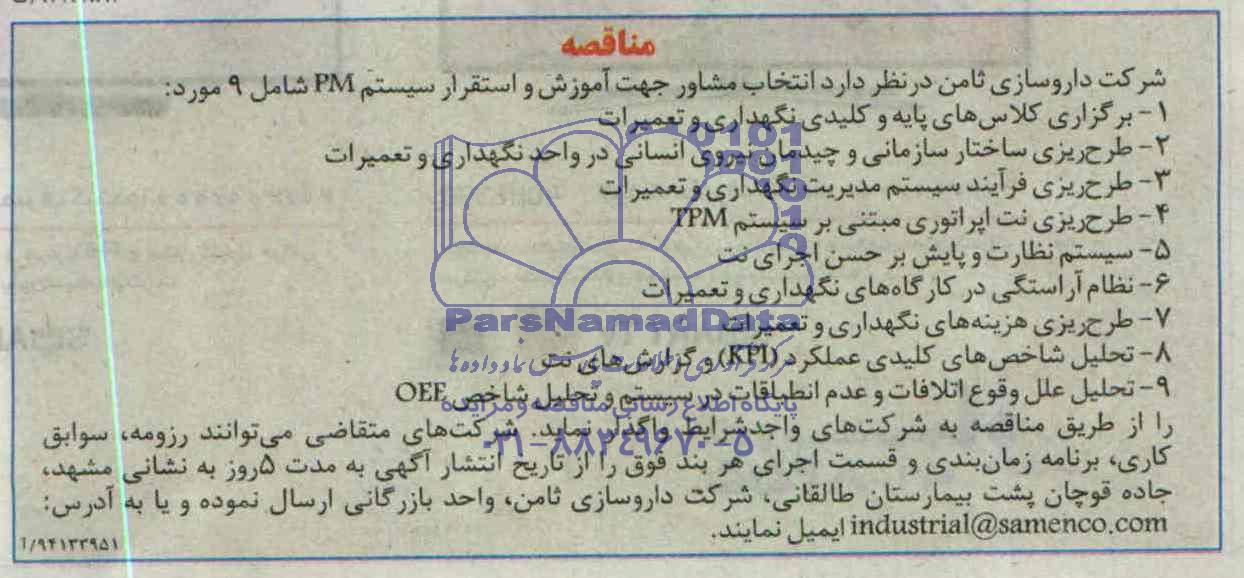 مناقصه
شرکت داروسازی ثامن درنظر دارد انتخاب مشاور جهت آموزش و استقرار سیستم PM شامل ۹ مورد:
۱- برگزاری کلاس‌های پایه و کلیدی نگهداری و تعمیرات
۲- طرح‌ریزی ساختار سازمانی و چیدمان نیروی انسانی در واحد نگهداری و تعمیرات
۳- طرح‌ریزی فرآیند سیستم مدیریت نگهداری و تعمیرات
۴- طرح‌ریزی نت اپراتوری مبتنی بر سیستم TPM
۵- سیستم نظارت و پایش بر حسن اجرای نت
۶- نظام آراستگی در کارگاه‌های نگهداری و تعمیرات
۷- طرح‌ریزی هزینه‌های نگهداری و تعمیرات
ParsNamadData
۸- تحلیل شاخص‌های کلیدی عملکرد (KPI) و گزارش‌های نت
۹- تحلیل علل وقوع اتلافات و عدم انطباقات در سیستم و تحلیل شاخص OEE
پایگاه اطلاع رسانی مناقصه و مزایده
را از طریق مناقصه به شرکت‌های واجدشرایط واگذار نماید. شرکت‌های متقاضی می‌توانند رزومه، سوابق
۰۲۱-۸۸۳۴۹۶۷۰-۵
کاری، برنامه زمان‌بندی و قسمت اجرای هر بند فوق را از تاریخ انتشار آگهی به مدت ۵روز به نشانی مشهد،
جاده قوچان پشت بیمارستان طالقانی، شرکت داروسازی ثامن، واحد بازرگانی ارسال نموده و یا به آدرس:
industrial@samenco.com ایمیل نمایند.
۱/۹۴۱۳۳۹۵۱